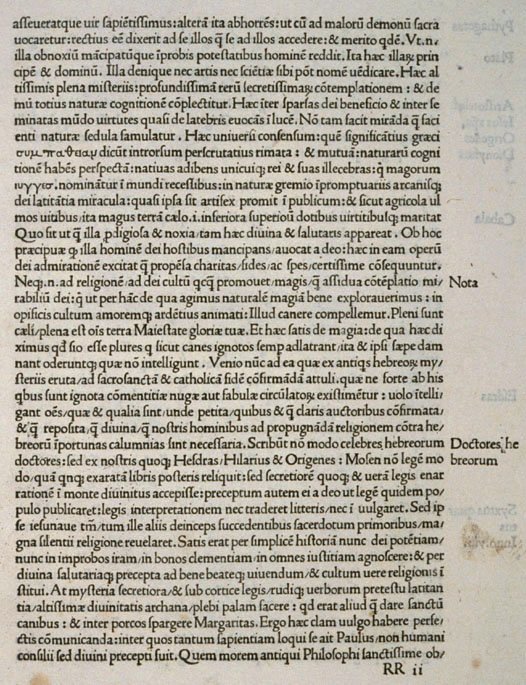 asseueratque uir sapiētissimus: alterā ita abhorrēs: ut cū ad malorū demonū sacra
uocaretur: rectius eē dixerit ad se illos q̄ se ad illos accedere: & merito qdē. Vt.n,
illa obnoxiū mācipatūq; īprobis potestatibus hominē reddit. Ita hæc illaꝝ prin
cipē & dominū. Illa denique nec artis nec sciētiæ sibi pōt nomē uēdicare. Hæc al
tissimis plena misteriis: profundissimā rerū secretissimaꝝ cōtemplationem: & de
mū totius naturæ cognitionē cōplectitur. Hæc īter sparsas dei beneficio & inter se
minatas mūdo uirtutes quasi de latebris euocās ī lucē. Nō tam facit mirāda q̄ faci
enti naturæ sedula famulatur. Hæc uniuersi consensum: quē significātius græci
συμπαθιαν dicūt introrsum perscrutatius rimata: & mutuā: naturarū cogni
tionē habēs perspectā: natiuas adibens unicuiq; rei & suas illecebras: q̄ magorum
ιυγγισ. nominātur ī mundi recessibus: in naturæ gremio īpromptuariis arcanisq;
dei latitātia miracula: quasi ipsa sit artisex promit ī publicum: & sicut agricola ul
mos uitibus/ita magus terrā cælo.i.inferiora superiorū dotibus uirtitibusq; maritat
Quo fit ut q̄ illa ꝓdigiosa & noxia/tam hæc diuina & salutaris appareat. Ob hoc
præcipuæ q; illa hominē dei hostibus mancipans/auocat a deo: hæc in eam operū
dei admirationē excitat q̄ propēsa charitas/fides, ac spes/certissime cōsequuntur.
Neq;.n.ad religionē/ad dei cultū qcq̄ promouet/magis/q̄ assidua cōtēplatio mi
rabiliū dei: q̄ ut per hāc de qua agimus naturalē magiā bene explorauerimus: in
opificis cultum amoremq; ardētius animati: Illud canere compellemur. Pleni sunt
cæli/plena est oīs terra Maiestate gloriæ tuæ. Et hæc satis de magia: de qua hæc di
ximus qđ sio esse plures q̄ sicut canes ignotos semp adlatrant/ita & ipsi sæpe dam
nant oderuntq; quæ nō intelligunt. Venio nūc ad ea quæ ex antiqs hebreoꝝ my/
steriis eruta/ad sacrosanctā & catholicā fidē cōfirmādā attuli. quæ ne forte ab his
qbus sunt ignota cōmentitiæ nugæ aut fabulæ circulatoꝝ existimētur: uolo ītelli/
gant oēs/quæ & qualia sint/unde petita/quibus & q̄ claris auctoribus cōfirmata/
& q̄ reposita/q̄ diuina/q̄ nostris hominibus ad propugnādā religionem cōtra he/
breorū īportunas calumnias sint necessaria. Scribūt nō modo celebres hebreorum
doctores: sed ex nostris quoq; Hesdras/Hilarius & Origenes: Mosen nō legē mo
do/quā qnq; exaratā libris posteris reliquit: sed secretiorē quoq; & uerā legis enar
rationē ī monte diuinitus accepisse: preceptum autem ei a deo ut legē quidem po
pulo publicaret: legis interpretationem nec traderet litteris/nec ī uulgaret. Sed ip
se iesunauæ tm̄/tum ille aliis deinceps succedentibus sacerdotum primoribus/ma/
gna silentii religione reuelaret. Satis erat per simplicē historiā nunc dei potētiam/
nunc in improbos iram/in bonos clementiam/in omnes iustitiam agnoscere: & per
diuina salutariaq; precepta ad bene beateq; uiuendum/& cultum uere religionis ī
stitui. At mysteria secretiora/& sub cortice legis/rudiq; uerborum pretestu latitan
tia/altissimæ diuinitatis archana/plebi palam facere: qd erat aliud q̄ dare sanctū
canibus: & inter porcos spargere Margaritas. Ergo hæc clam uulgo habere perfe/
ctis cōmunicanda: inter quos tantum sapientiam loqui se ait Paulus/non humani
consilii sed diuini precepti fuit. Quem morem antiqui Philosophi sanctissime ob/
RR ii
Nota
Doctores he
breorum